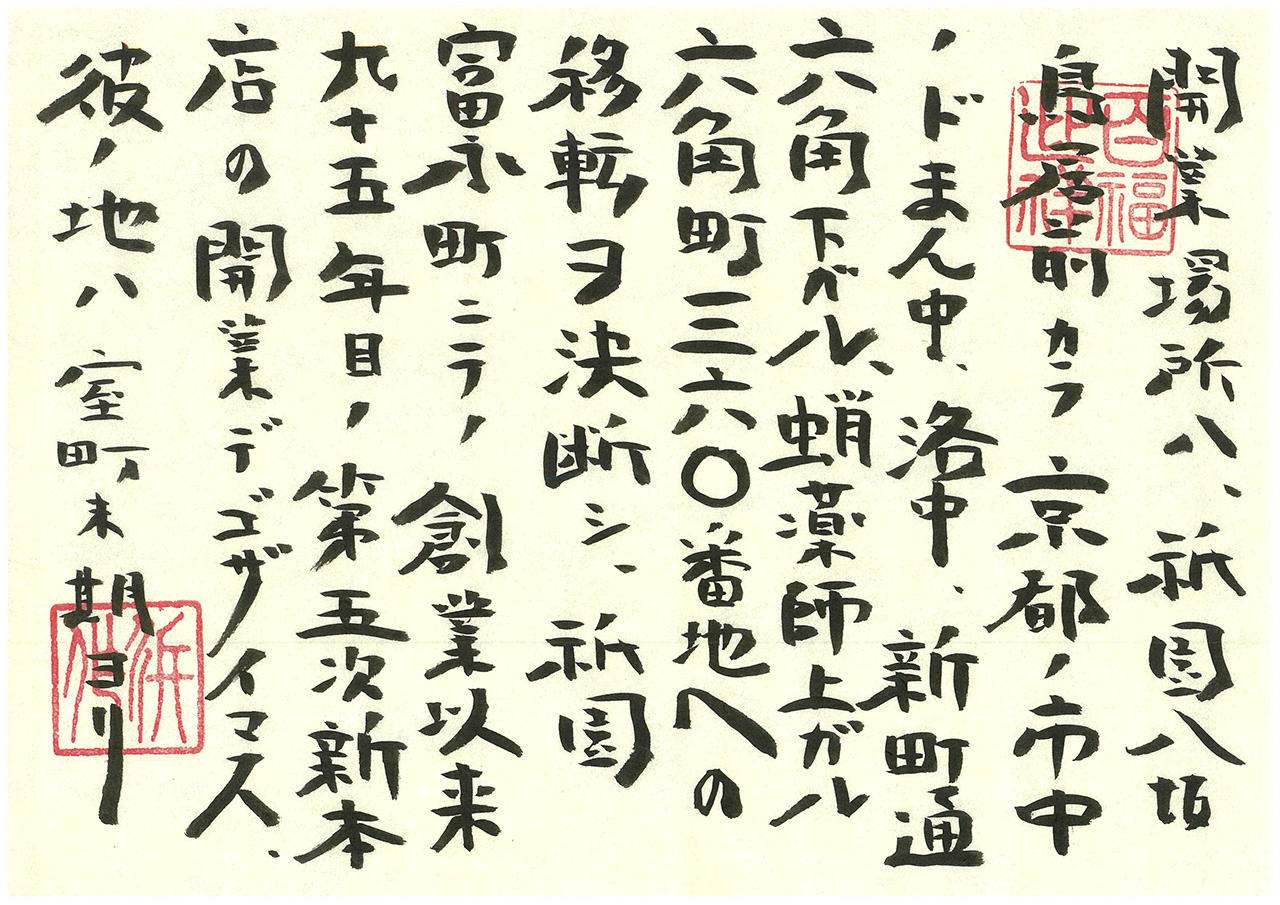 開業場所ハ、祇園八坂
鳥居前カラ京都ノ市中
ノドまん中、洛中、新町通
六角下ガル、蛸薬師上ガル
六角町三六〇番地への
移転ヲ決断シ、祇園
富永町ニテノ創業以来
九十五年目ノ第五次新本
店の開業デゴザイマス、
彼ノ地ハ室町末期ヨリ
百福
迎祥
浜